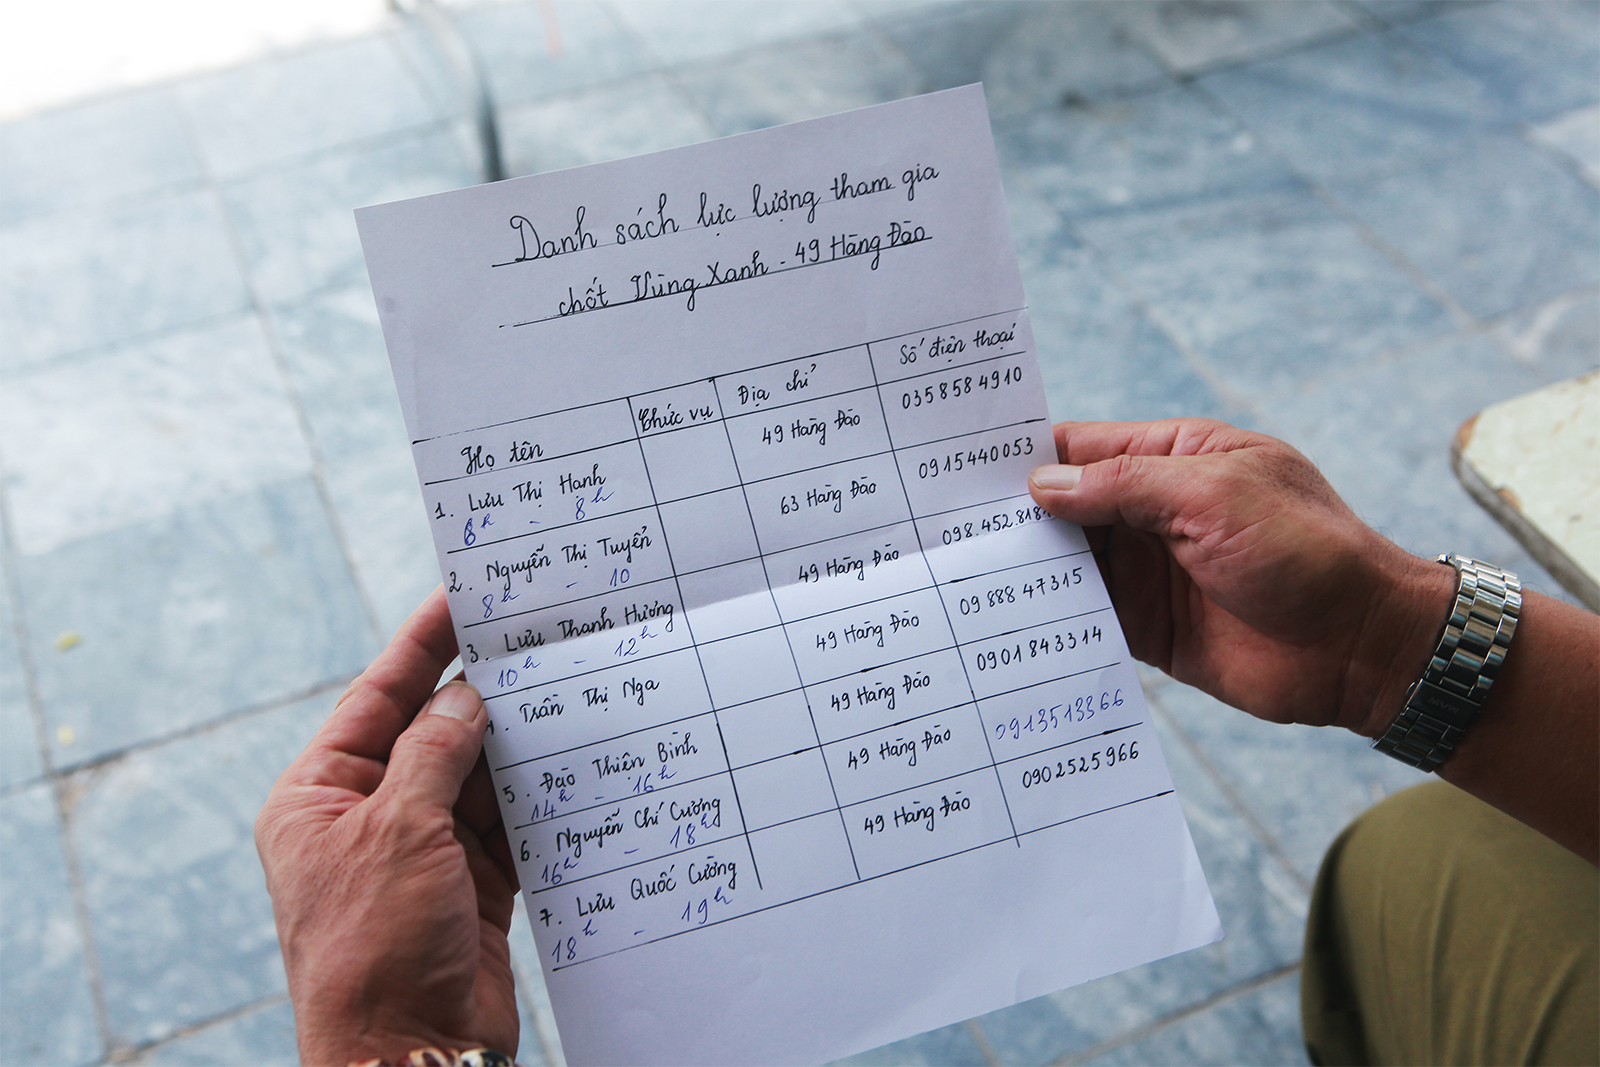 Danh sách lực lượng tham gia
chốt Vùng Xanh - 49 Hàng Đào
Họ tên Chức vụ Địa chỉ Số điện thoại
1. Lưu Thị Hạnh 49 Hàng Đào 0358584910
6h - 8h
2. Nguyễn Thị Tuyển 63 Hàng Đào 0915440053
8h - 10
3. Lưu Thanh Hương 49 Hàng Đào 098.452.818
10h - 12h
4. Trần Thị Nga 49 Hàng Đào 0988847315
5. Đào Thiện Bình 49 Hàng Đào 0901843314
14h - 16h
6. Nguyễn Chí Cường 49 Hàng Đào 0913513366
16h - 18h
7. Lưu Quốc Cường 49 Hàng Đào 0902525966
18h - 19h